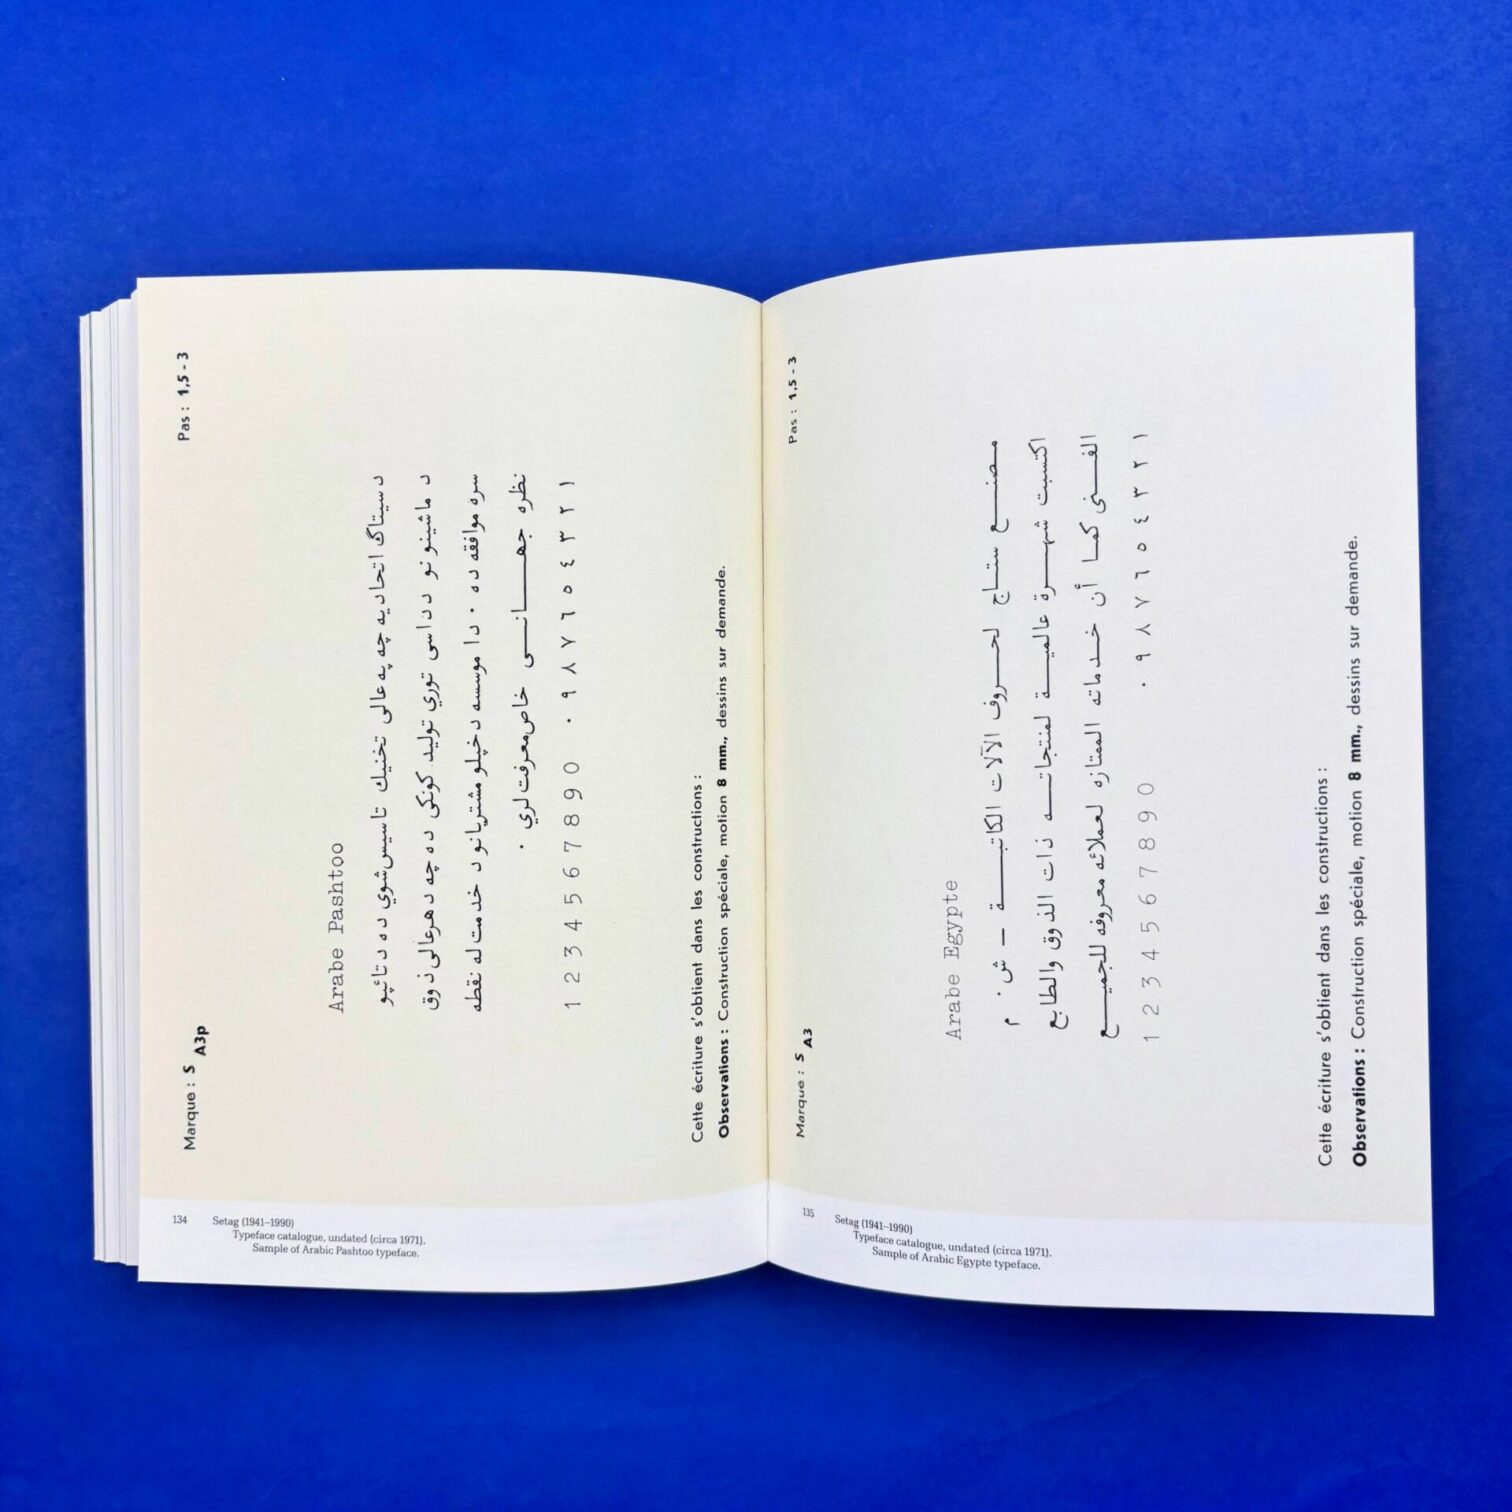 Marque : S A3p
Pas : 1,5 - 3
Arabe Pashtoo
د سیتاگ اتحادیه چه په عالی تخنیك تاسیس شوي ده د تائپو
د ماشینو نو د داسی توري تولید كونكی ده چه د هر عالی ذوق
سره موافقه ده ٠ دا موسسه د خپلو مشتریانو د خدمت له نقطه
نظره جهـــانـــی خاص معرفت لري ٠
1 2 3 4 5 6 7 8 9 0 ٠ ٩ ٨ ٧ ٦ ٥ ٤ ٣ ٢ ١
Cette écriture s'obtient dans les constructions :
Observations : Construction spéciale, motion 8 mm., dessins sur demande.
134
Setag (1941–1990)
Typeface catalogue, undated (circa 1971).
Sample of Arabic Pashtoo typeface.
Marque : S A3
Pas : 1,5 - 3
Arabe Egypte
مصنـــع ستـــاج لحـــروف الآلات الكاتبـــة – ش ٠ م
اكتسبت شهـــرة عالميـــة لمنتجاتـــه ذات الذوق والطابع
الفـــنى كمـــا أن خـدماته الممتازه لعملائه معروفه للجميـــع
1 2 3 4 5 6 7 8 9 0 ٠ ٩ ٨ ٧ ٦ ٥ ٤ ٣ ٢ ١
Cette écriture s'obtient dans les constructions :
Observations : Construction spéciale, motion 8 mm., dessins sur demande.
135
Setag (1941–1990)
Typeface catalogue, undated (circa 1971).
Sample of Arabic Egypte typeface.